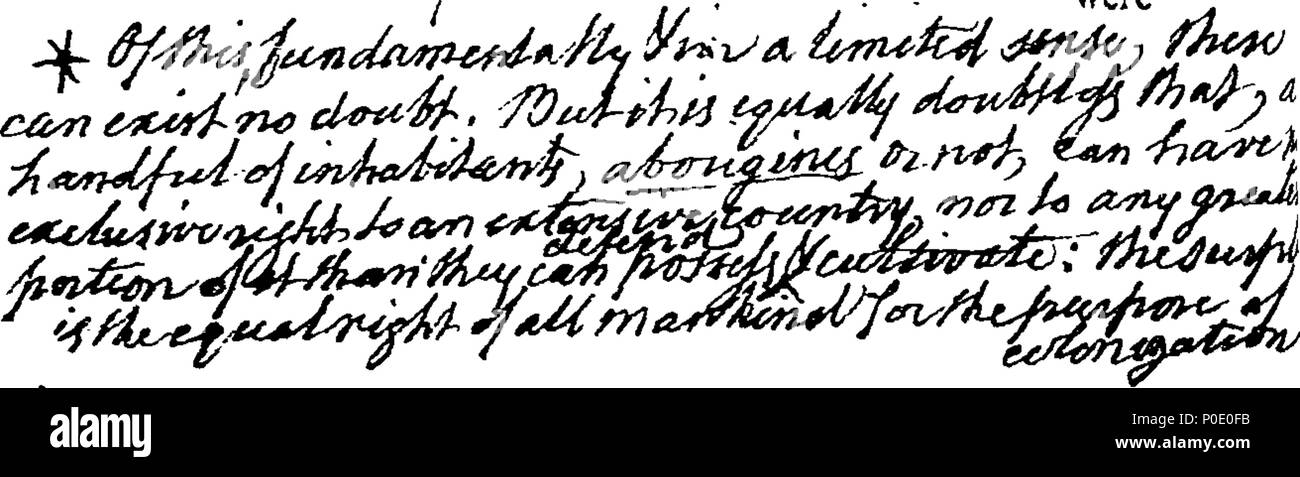 were
* Of this, fundamentally & in a limited sense, there
can exist no doubt. But it is equally doubtless that, a
handful of inhabitants, aborigines or not, can have
exclusive right to an extensive country, nor to any greater
defend
portion of it than they can possess & cultivate: the surpl
is the equal right of all mankind for the purpose of
colonization
alamy
a
alamy
Image ID: P0E0FB
www.alamy.com